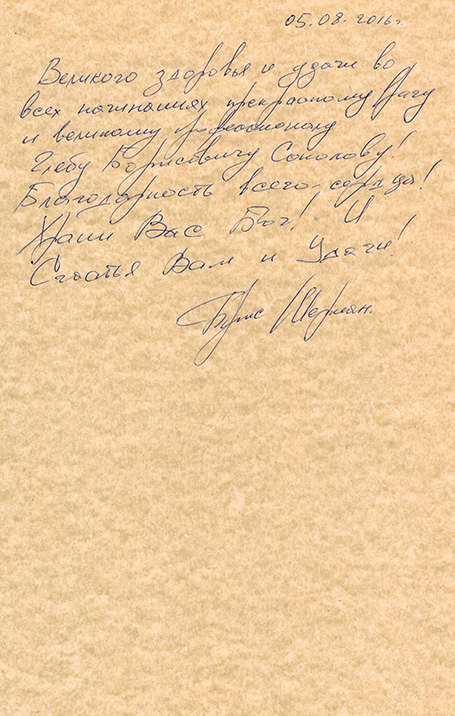 05.08.2016г.
Великого здоровья и удачи во
всех начинаниях прекрасному врачу
и великому профессионалу
Глебу Борисовичу Соколову!
Благодарность всего сердца!
Храни Вас Бог! И
Счастья Вам и Удачи!
Борис Шерман.